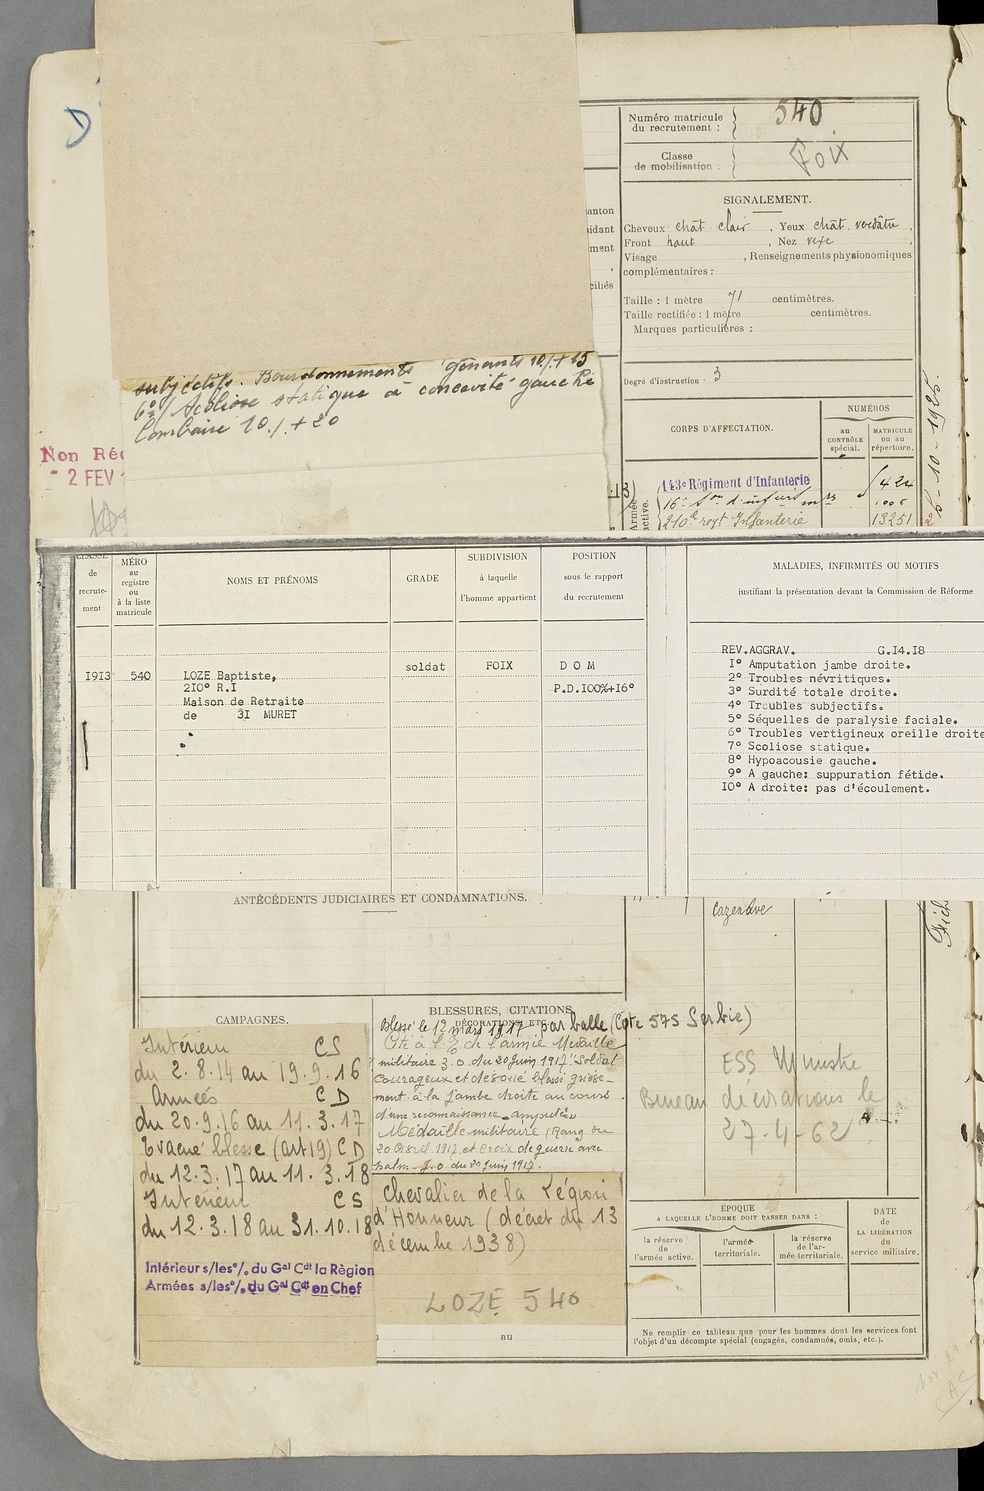 D
Numéro matricule
du recrutement :
540
Classe
de mobilisation :
Foix
SIGNALEMENT.
Cheveux chât clair , Yeux chât. verdâtre ,
Front haut , Nez vexe ,
Visage , Renseignements physionomiques
complémentaires :
Taille : 1 mètre 71 centimètres.
Taille rectifiée : 1 mètre centimètres.
Marques particulières :
Degré d'instruction . 3
anton
idant
ment
ciliés
subjectifs. Bourdonnements gênants 10% + 15
6°/ Scoliose statique à concavité gauche
lombaire 10% + 20
Non Réc
- 2 FEV 1
CORPS D'AFFECTATION.
NUMÉROS
au
CONTRÔLE
spécial.
MATRICULE
ou au
répertoire.
Armée
active.
143e Régiment d'Infanterie
424
16e Son d'infirmrs
1006
210e regt Infanterie
13251
25-10-1925
CLASSE
de
recrute-
ment
MÉRO
au
registre
ou
à la liste
matricule
NOMS ET PRÉNOMS
GRADE
SUBDIVISION
à laquelle
l'homme appartient
POSITION
sous le rapport
du recrutement
MALADIES, INFIRMITÉS OU MOTIFS
justifiant la présentation devant la Commission de Réforme
1913 540 LOZE Baptiste, soldat FOIX D O M
210° R.I P.D.100%+16°
Maison de Retraite
de 31 MURET
REV.AGGRAV. G.14.18
1° Amputation jambe droite.
2° Troubles névritiques.
3° Surdité totale droite.
4° Troubles subjectifs.
5° Séquelles de paralysie faciale.
6° Troubles vertigineux oreille droite
7° Scoliose statique.
8° Hypoacousie gauche.
9° A gauche: suppuration fétide.
10° A droite: pas d'écoulement.
ANTÉCÉDENTS JUDICIAIRES ET CONDAMNATIONS.
Cazenave
CAMPAGNES.
Intérieur CS
du 2.8.14 au 19.9.16
Armées CD
du 20.9.16 au 11.3.17
Evacué blessé (art 19) CD
du 12.3.17 au 11.3.18
Intérieur CS
du 12.3.18 au 31.10.18
Intérieur s/les°/. du Gal Cdt la Règion
Armées s/les°/. du Gal Cdt en Chef
BLESSURES, CITATIONS,
DÉCORATIONS, ETC.
Blessé le 12 mars 1917 par balle (Cote 575 Serbie)
Cité à l'% de l'armée Médaille
militaire J.O. du 20 juin 1917. "Soldat
courageux et dévoué blessé griève-
ment à la jambe droite au cours
d'une reconnaissance - amputé"
Médaille militaire (Rang du
20 avril 1917 et croix de guerre avec
palm - J.O du 20 juin 1917.
Chevalier de la Légion
d'Honneur (décret du 13
décembre 1938)
LOZE 540
au
ESS Ministre
Bureau décorations le
27-4-62
ÉPOQUE
A LAQUELLE L'HOMME DOIT PASSER DANS :
la réserve
de
l'armée active.
l'armée
territoriale.
la réserve
de l'ar-
mée territoriale.
DATE
de
LA LIBÉRATION
du
service militaire.
Ne remplir ce tableau que pour les hommes dont les services font
l'objet d'un décompte spécial (engagés, condamnés, omis, etc.).